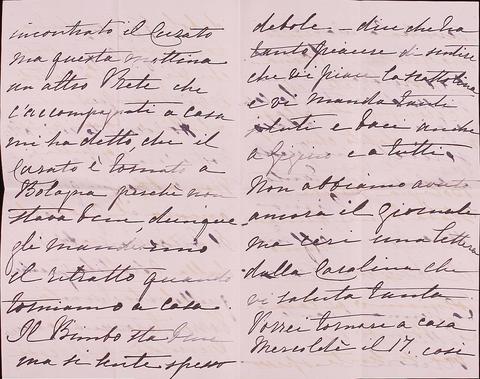 incontrato il Curato
ma questa mattina
un altro Prete che
l'accompagnò a casa
mi ha detto, che il
Curato è tornato a
Bologna perché non
stava bene, dunque
gli manderemo
il ritratto quando
torniamo a casa
Il Bimbo sta bene
ma si sente spesso
debole. – dice che ha
tanto piacere di sentire
che vi piace la scattolina
e vi manda tanti
saluti e baci anche
a e a tutti.
Non abbiamo avuto
ancora il giornale
ma ieri una lettera
dalla Carolina che
vi saluta tanto
Vorrei tornare a casa
Mercoledì il 17. così